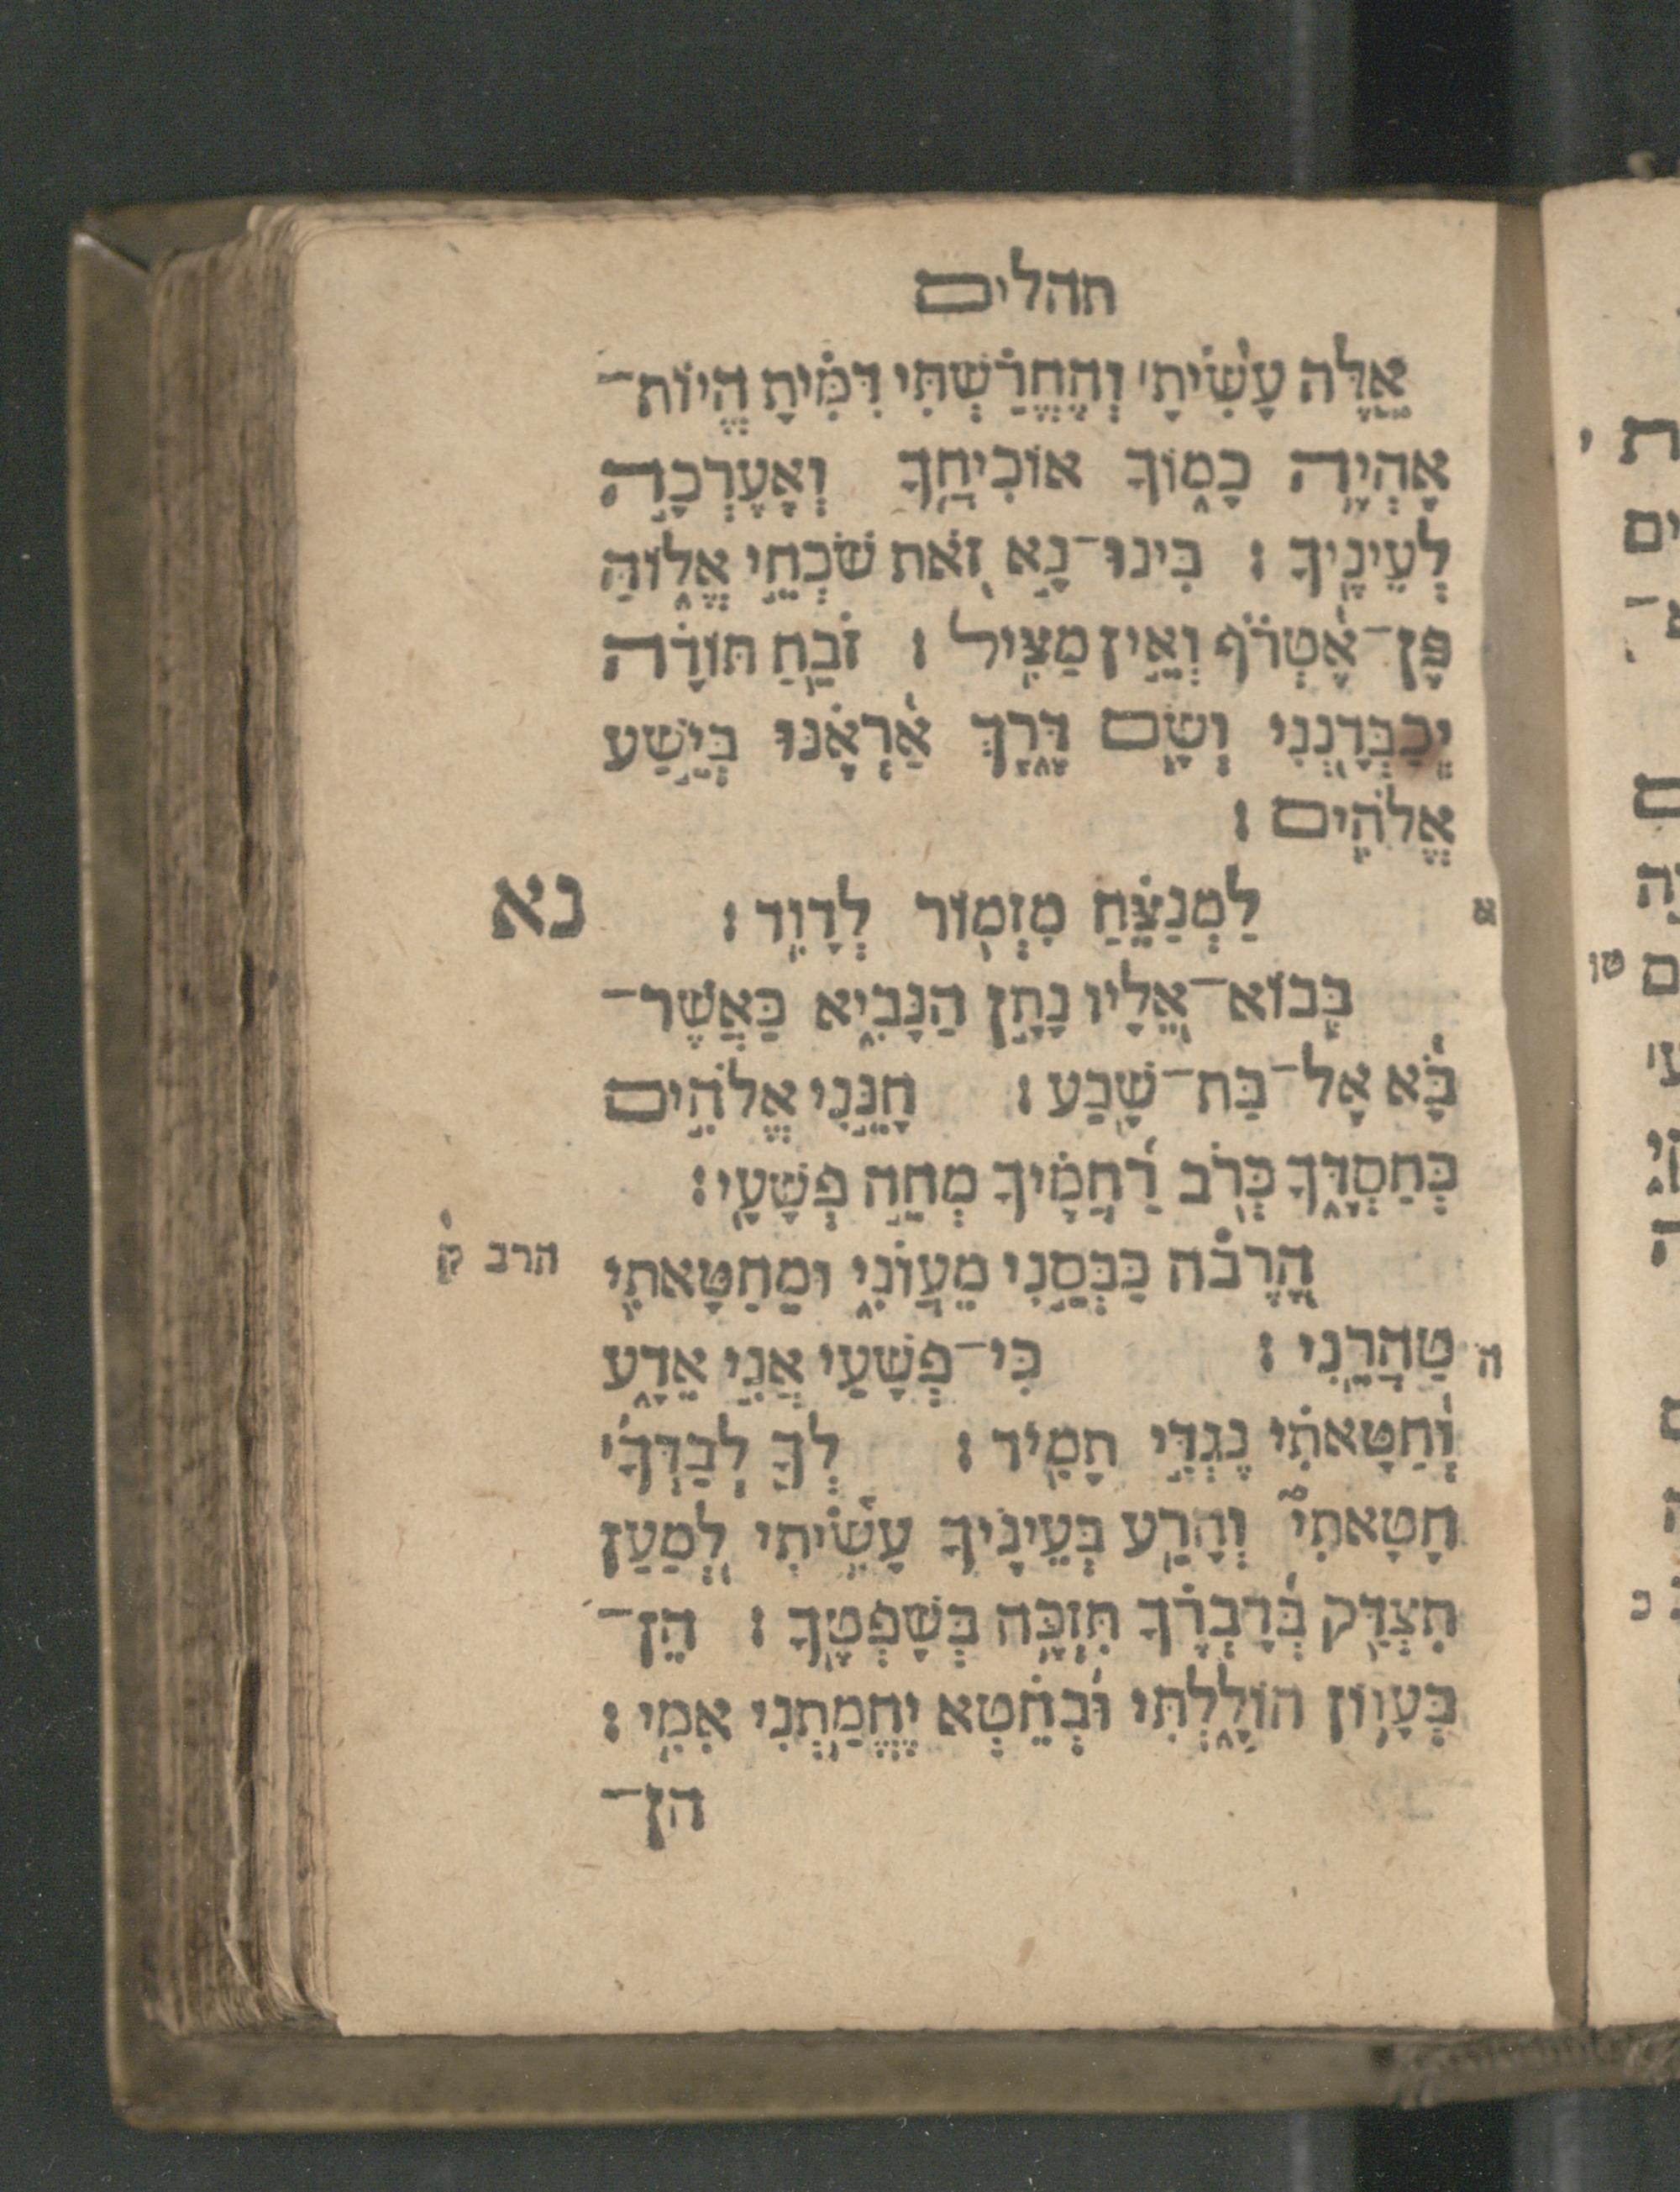 תהלים
אֵלֶּה עָשִׂיתָ וְהֶחֱרַשְׁתִּי דִּמִּיתָ הֱיוֹת־
אֶהְיֶה כָמוֹךָ אוֹכִיחֲךָ וְאֶעֶרְכָה
לְעֵינֶיךָ׃ בִּינוּ־נָא זֹאת שֹׁכְחֵי אֱלוֹהַּ
פֶּן־אֶטְרֹף וְאֵין מַצִּיל׃ זֹבֵחַ תּוֹדָה
יְכַבְּדָנְנִי וְשָׂם דֶּרֶךְ אַרְאֶנּוּ בְּיֵשַׁע
אֱלֹהִים׃
א לַמְנַצֵּחַ מִזְמוֹר לְדָוִד׃ נא
בְּבוֹא־אֵלָיו נָתָן הַנָּבִיא כַּאֲשֶׁר־
בָּא אֶל־בַּת־שָׁבַע׃ חָנֵּנִי אֱלֹהִים
כְּחַסְדֶּךָ כְּרֹב רַחֲמֶיךָ מְחֵה פְשָׁעָי׃
הֶרְבֵה כַּבְּסֵנִי מֵעֲוֹנִי וּמֵחַטָּאתִי הרב ק
ה טַהֲרֵנִי׃ כִּי־פְשָׁעַי אֲנִי אֵדָע
וְחַטָּאתִי נֶגְדִּי תָמִיד׃ לְךָ לְבַדְּךָ
חָטָאתִי וְהָרַע בְּעֵינֶיךָ עָשִׂיתִי לְמַעַן
תִּצְדַּק בְּדָבְרֶךָ תִּזְכֶּה בְשָׁפְטֶךָ׃ הֵן־
בְּעָווֹן חוֹלָלְתִּי וּבְחֵטְא יֶחֱמַתְנִי אִמִּי׃
הן־